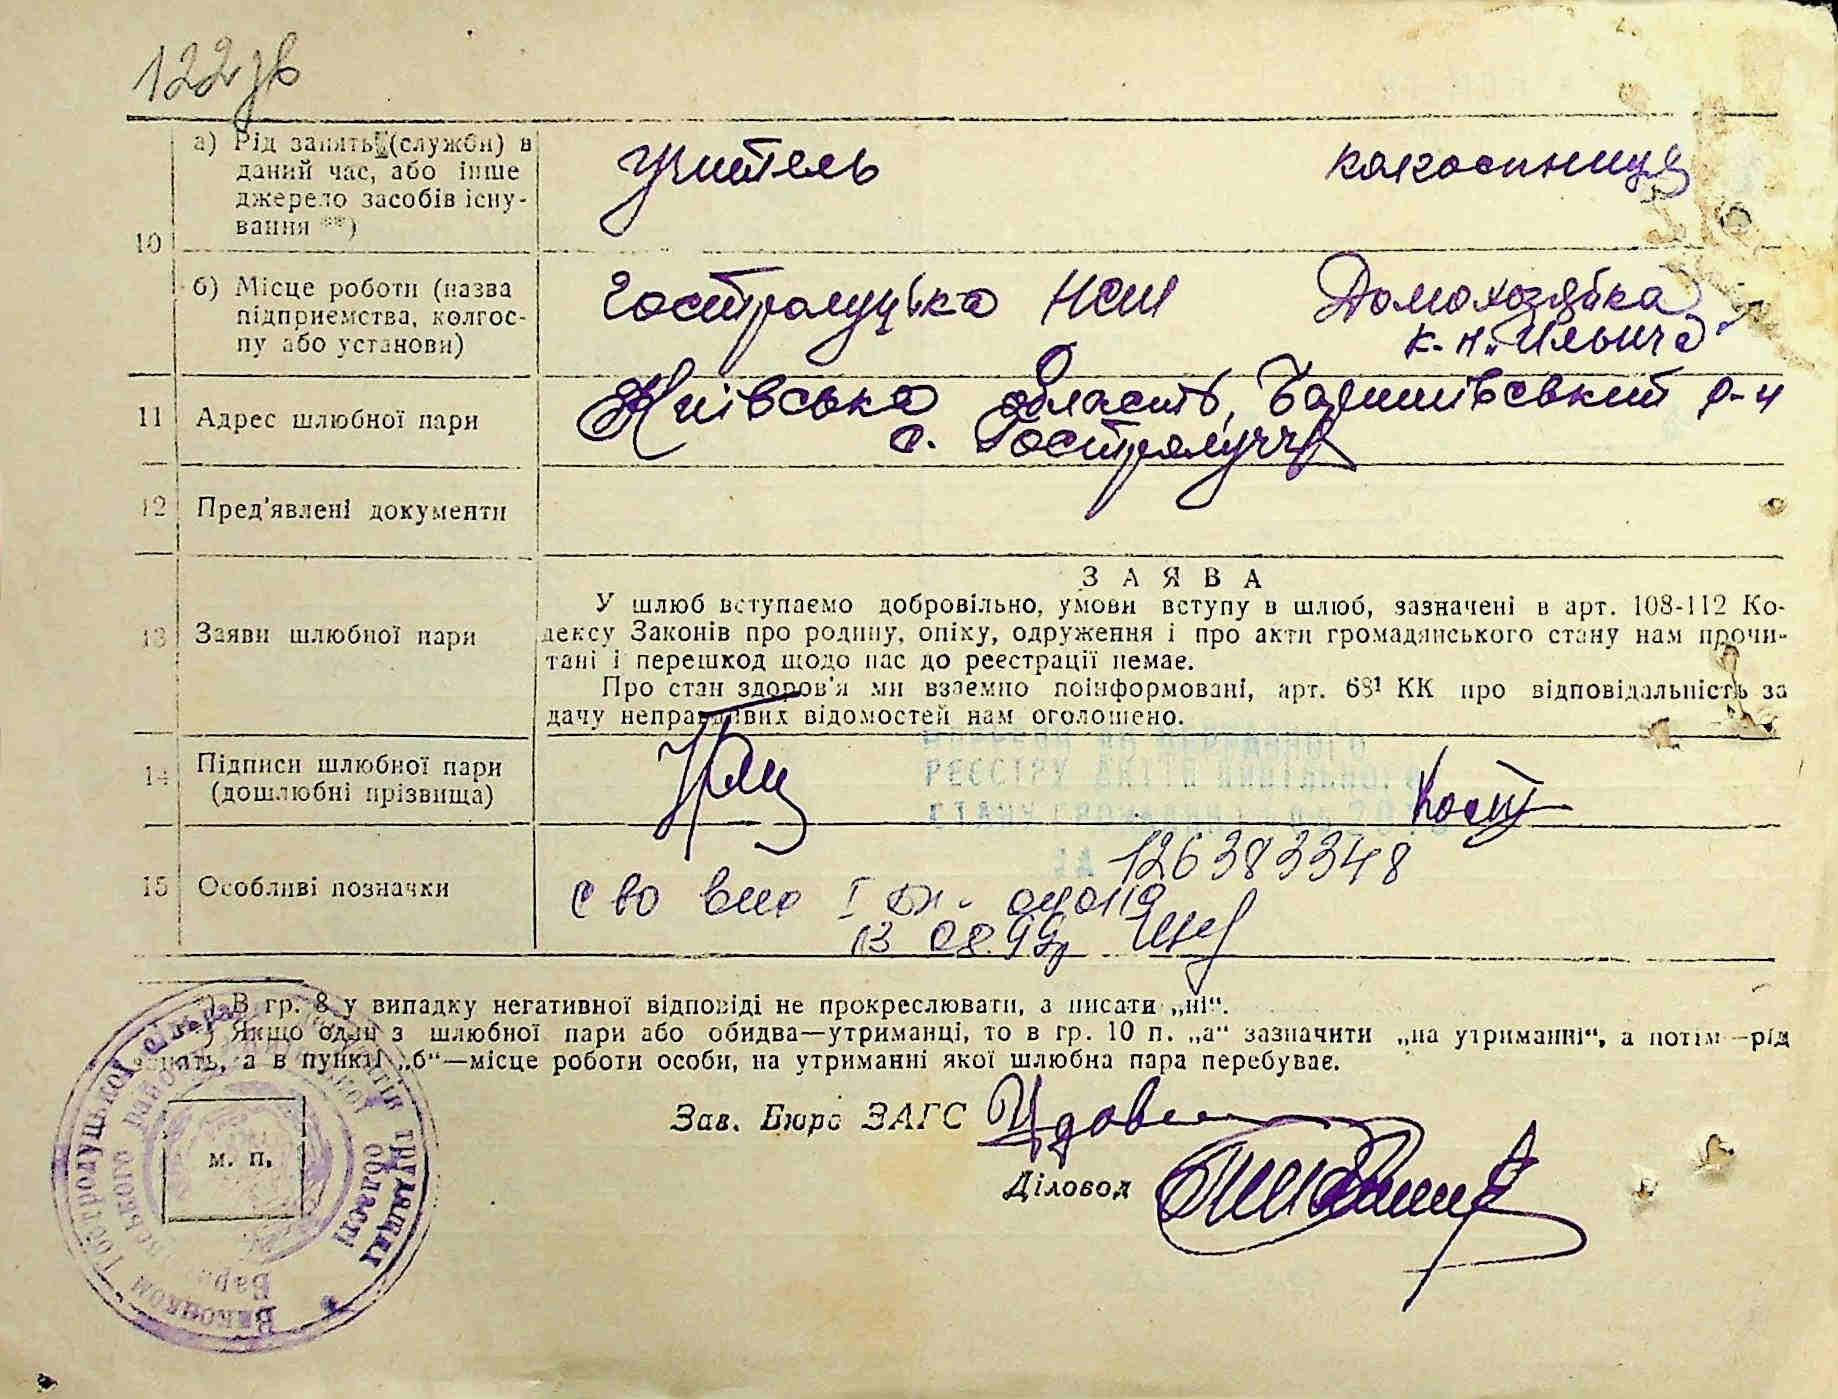 122 зв
10
а) Рід занять (служби) в
даний час, або інше
джерело засобів існу-
вання **)
Учитель
колгоспниця
б) Місце роботи (назва
підприємства, колгос-
пу або установи)
Гостролуцька НСШ
Домохозяйка
к-п „Ильича
11 Адрес шлюбної пари
Київська область, Баришівський р-н
с. Гостролуччя
12 Пред'явлені документи
13 Заяви шлюбної пари
ЗАЯВА
У шлюб вступаємо добровільно, умови вступу в шлюб, зазначені в арт. 108-112 Ко-
дексу Законів про родину, опіку, одруження і про акти громадянського стану нам прочи-
тані і перешкод щодо нас до реестрації немае.
Про стан здоров'я ми взаемно поінформовані, арт. 68¹ КК про відповідальність за
дачу неправдивих відомостей нам оголошено.
14 Підписи шлюбної пари
(дошлюбні прізвища)
Кост
РЕЄСТРУ АКТІВ ЦИВІЛЬНОГО
СТАНУ ГРОМАДЯН
ЗА 126383348
15 Особливі позначки
с во I
13 08.99р
*) В гр. 8 у випадку негативної відповіді не прокреслювати, а писати „ні“.
**) Якщо один з шлюбної пари або обидва—утриманці, то в гр. 10 п. „а“ зазначити „на утриманні“, а потім—рід
занять, а в пункті „б“—місце роботи особи, на утриманні якої шлюбна пара перебуває.
Зав. Бюро ЗАГС
Діловод
м. п.
Виконком Гостролуцької сільради депутатів трудящих
області